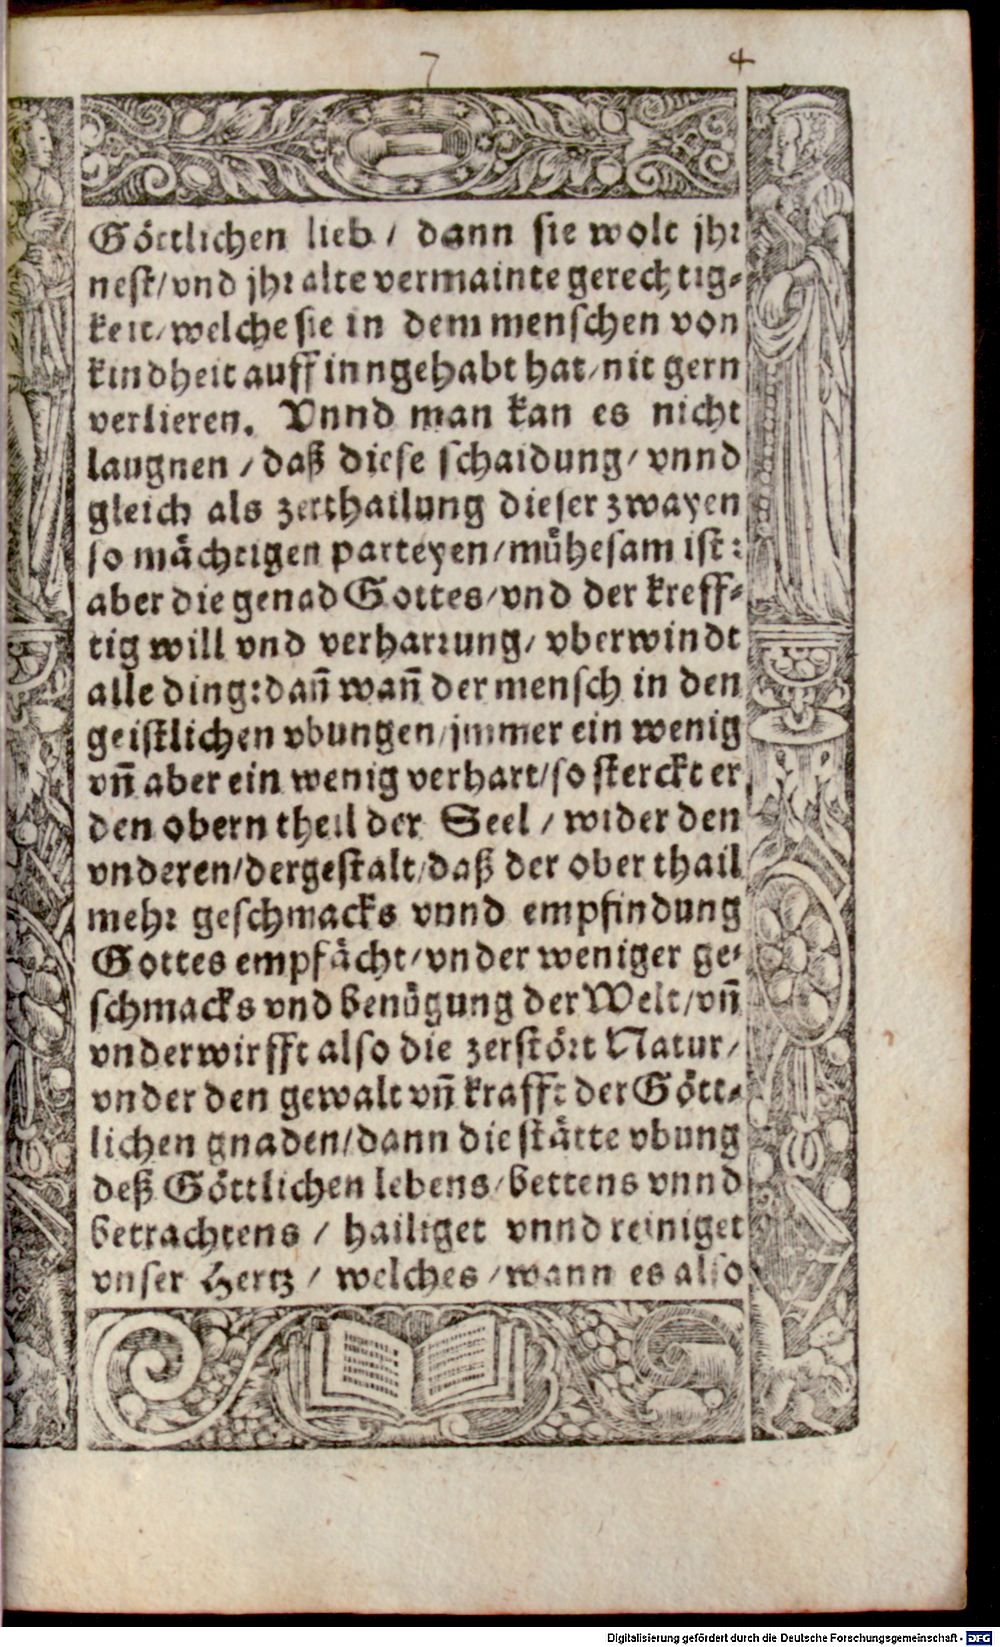 7 4
Göttlichen lieb / dann sie wolt jhr
nest/vnd jhr alte vermainte gerechtig-
keit/welche sie in dem menschen von
kindheit auff inngehabt hat/nit gern
verlieren. Vnnd man kan es nicht
laugnen / daß diese schaidung/vnnd
gleich als zerthailung dieser zwayen
so mächtigen parteyen/mühesam ist:
aber die genad Gottes/vnd der kreff-
tig will vnd verharrung/vberwindt
alle ding:dañ wañ der mensch in den
geistlichen vbungen/jmmer ein wenig
vñ aber ein wenig verhart/so sterckt er
den obern theil der Seel / wider den
vnderen/dergestalt/daß der ober thail
mehr geschmacks vnnd empfindung
Gottes empfächt/vnder weniger ge-
schmacks vnd benügung der Welt/vñ
vnderwirfft also die zerstört Natur/
vnder den gewalt vñ krafft der Gött-
lichen gnaden/dann die stätte vbung
deß Göttlichen lebens/bettens vnnd
betrachtens / hailiget vnnd reiniget
vnser Hertz / welches /wann es also
Digitalisierung gefördert durch die Deutsche Forschungsgemeinschaft - DFG